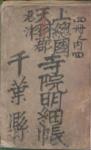 四冊之内四
上總國
天羽郡
寺院明細帳
千葉縣